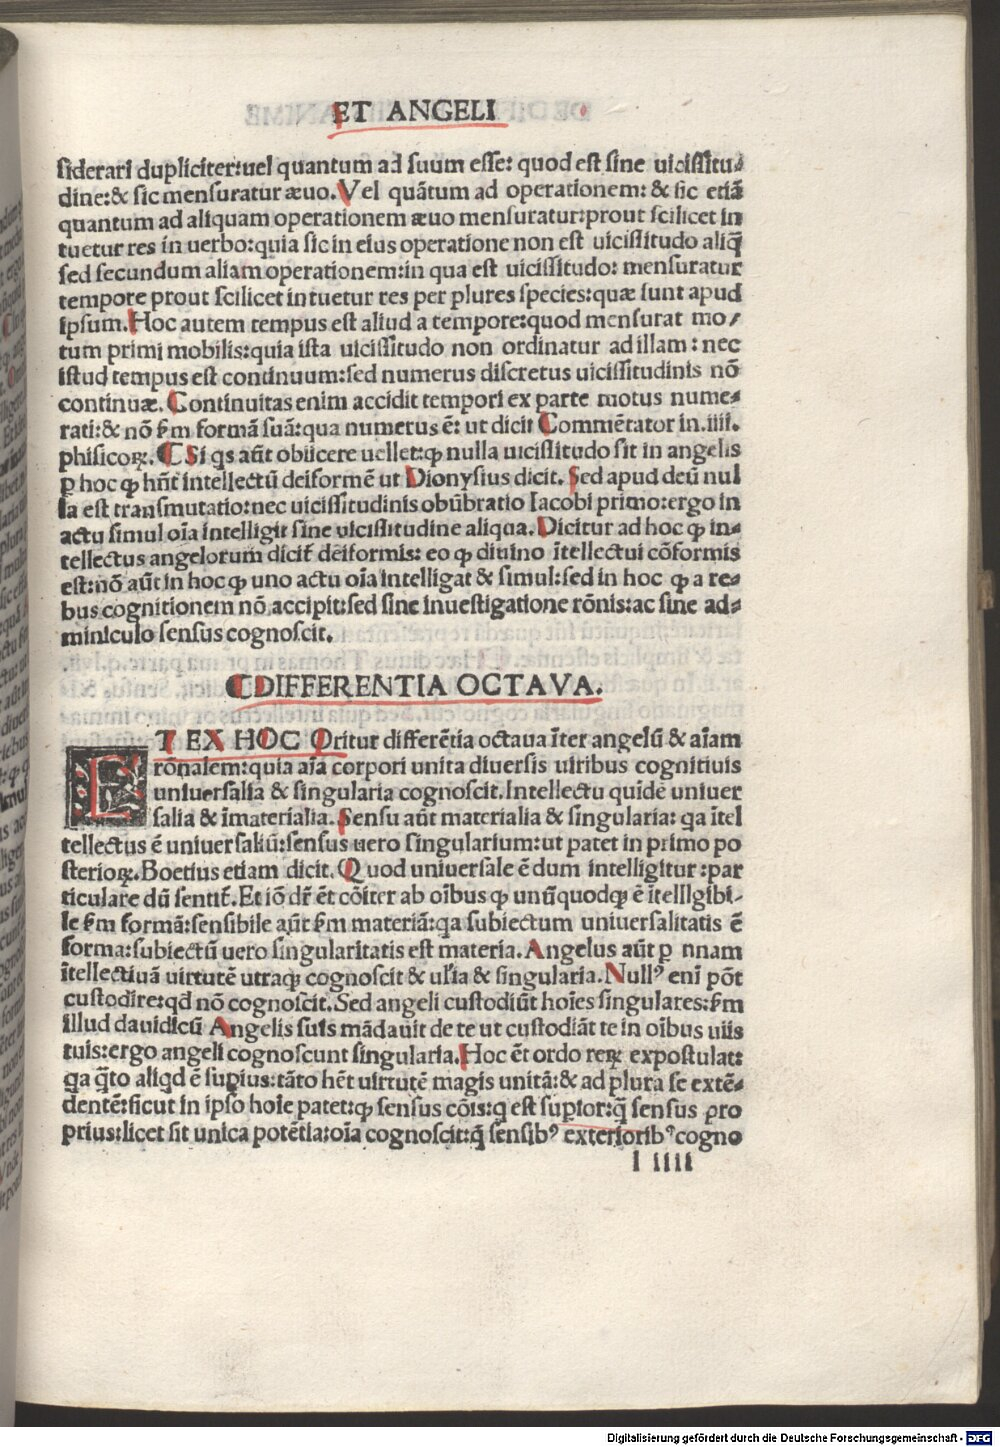 ET ANGELI
siderari dupliciter:uel quantum ad suum esse: quod est sine uicissitu⸗
dine:& sic mensuratur æuo. Vel quātum ad operationem: & sic etiā
quantum ad aliquam operationem æuo mensuratur:prout scilicet in
tuetur res in uerbo:quia sic in eius operatione non est uicissitudo aliq̄
sed secundum aliam operationem:in qua est uicissitudo: mensuratur
tempore prout scilicet intuetur res per plures species:quæ sunt apud
ipsum. Hoc autem tempus est aliud a tempore:quod mensurat mo/
tum primi mobilis:quia ista uicissitudo non ordinatur ad illam: nec
istud tempus est continuum:sed numerus discretus uicissitudinis nō
continuæ. Continuitas enim accidit tempori ex parte motus nume⸗
rati:& nō ẜm formā suā:qua numerus ē: ut dicit Commētator in .iiii.
phisicoꝝ. ¶ Si qs aūt obiicere uellet:ꝙ nulla uicissitudo sit in angelis
ꝑ hoc ꝙ hn̄t intellectū deiformē ut Dionysius dicit. Sed apud deū nul
la est transmutatio:nec uicissitudinis obūbratio Iacobi primo:ergo in
actu simul oīa intelligit sine uicissitudine aliqua. Dicitur ad hoc ꝙ in⸗
tellectus angelorum dicit̄ deiformis: eo ꝙ diuino ītellectui cōformis
est:nō aūt in hoc ꝙ uno actu oīa intelligat & simul:sed in hoc ꝙ a re⸗
bus cognitionem nō accipit:sed sine inuestigatione rōnis:ac sine ad⸗
miniculo sensus cognoscit.
¶DIFFERENTIA OCTAVA.
ET EX HOC Oritur differētia octaua īter angelū & aīam
rōnalem:quia aīa corpori unita diuersis uiribus cognitiuis
uniuersalia & singularia cognoscit. Intellectu quidē uniuer
salia & īmaterialia. Sensu aūt materialia & singularia: qa ītel
tellectus ē uniuersaliū:sensus uero singularium:ut patet in primo po
sterioꝝ. Boetius etiam dicit. Quod uniuersale ē dum intelligitur:par
ticulare dū sentit̄. Et iō dr̄ ēt cōiter ab oībus ꝙ unūquodqꝫ ē ītelligibi⸗
le ẜm formā:sensibile aūt ẜm materiā:qa subiectum uniuersalitatis ē
forma:subiectū uero singularitatis est materia. Angelus aūt ꝑ unam
ītellectiuā uirtutē utraqꝫ cognoscit & ul̄ia & singularia. Nullꝰ eni pōt
custodire:qd nō cognoscit. Sed angeli custodiūt hoīes singulares:ẜm
illud dauidicū Angelis suis mādauit de te ut custodiāt te in oībus uiis
tuis:ergo angeli cognoscunt singularia. Hoc ēt ordo reꝝ expostulat:
qa q̄to aliqd ē supius:tāto hēt uirtutē magis unitā:& ad plura se extē⸗
dentē:sicut in ipso hoīe patet:ꝙ sensus cōis:q est supior:q̄ sensus pro
prius:licet sit unica potētia:oīa cognoscit:q̄ sensibꝰ exterioribꝰ cogno
l iiii
Digitalisierung gefördert durch die Deutsche Forschungsgemeinschaft - DFG